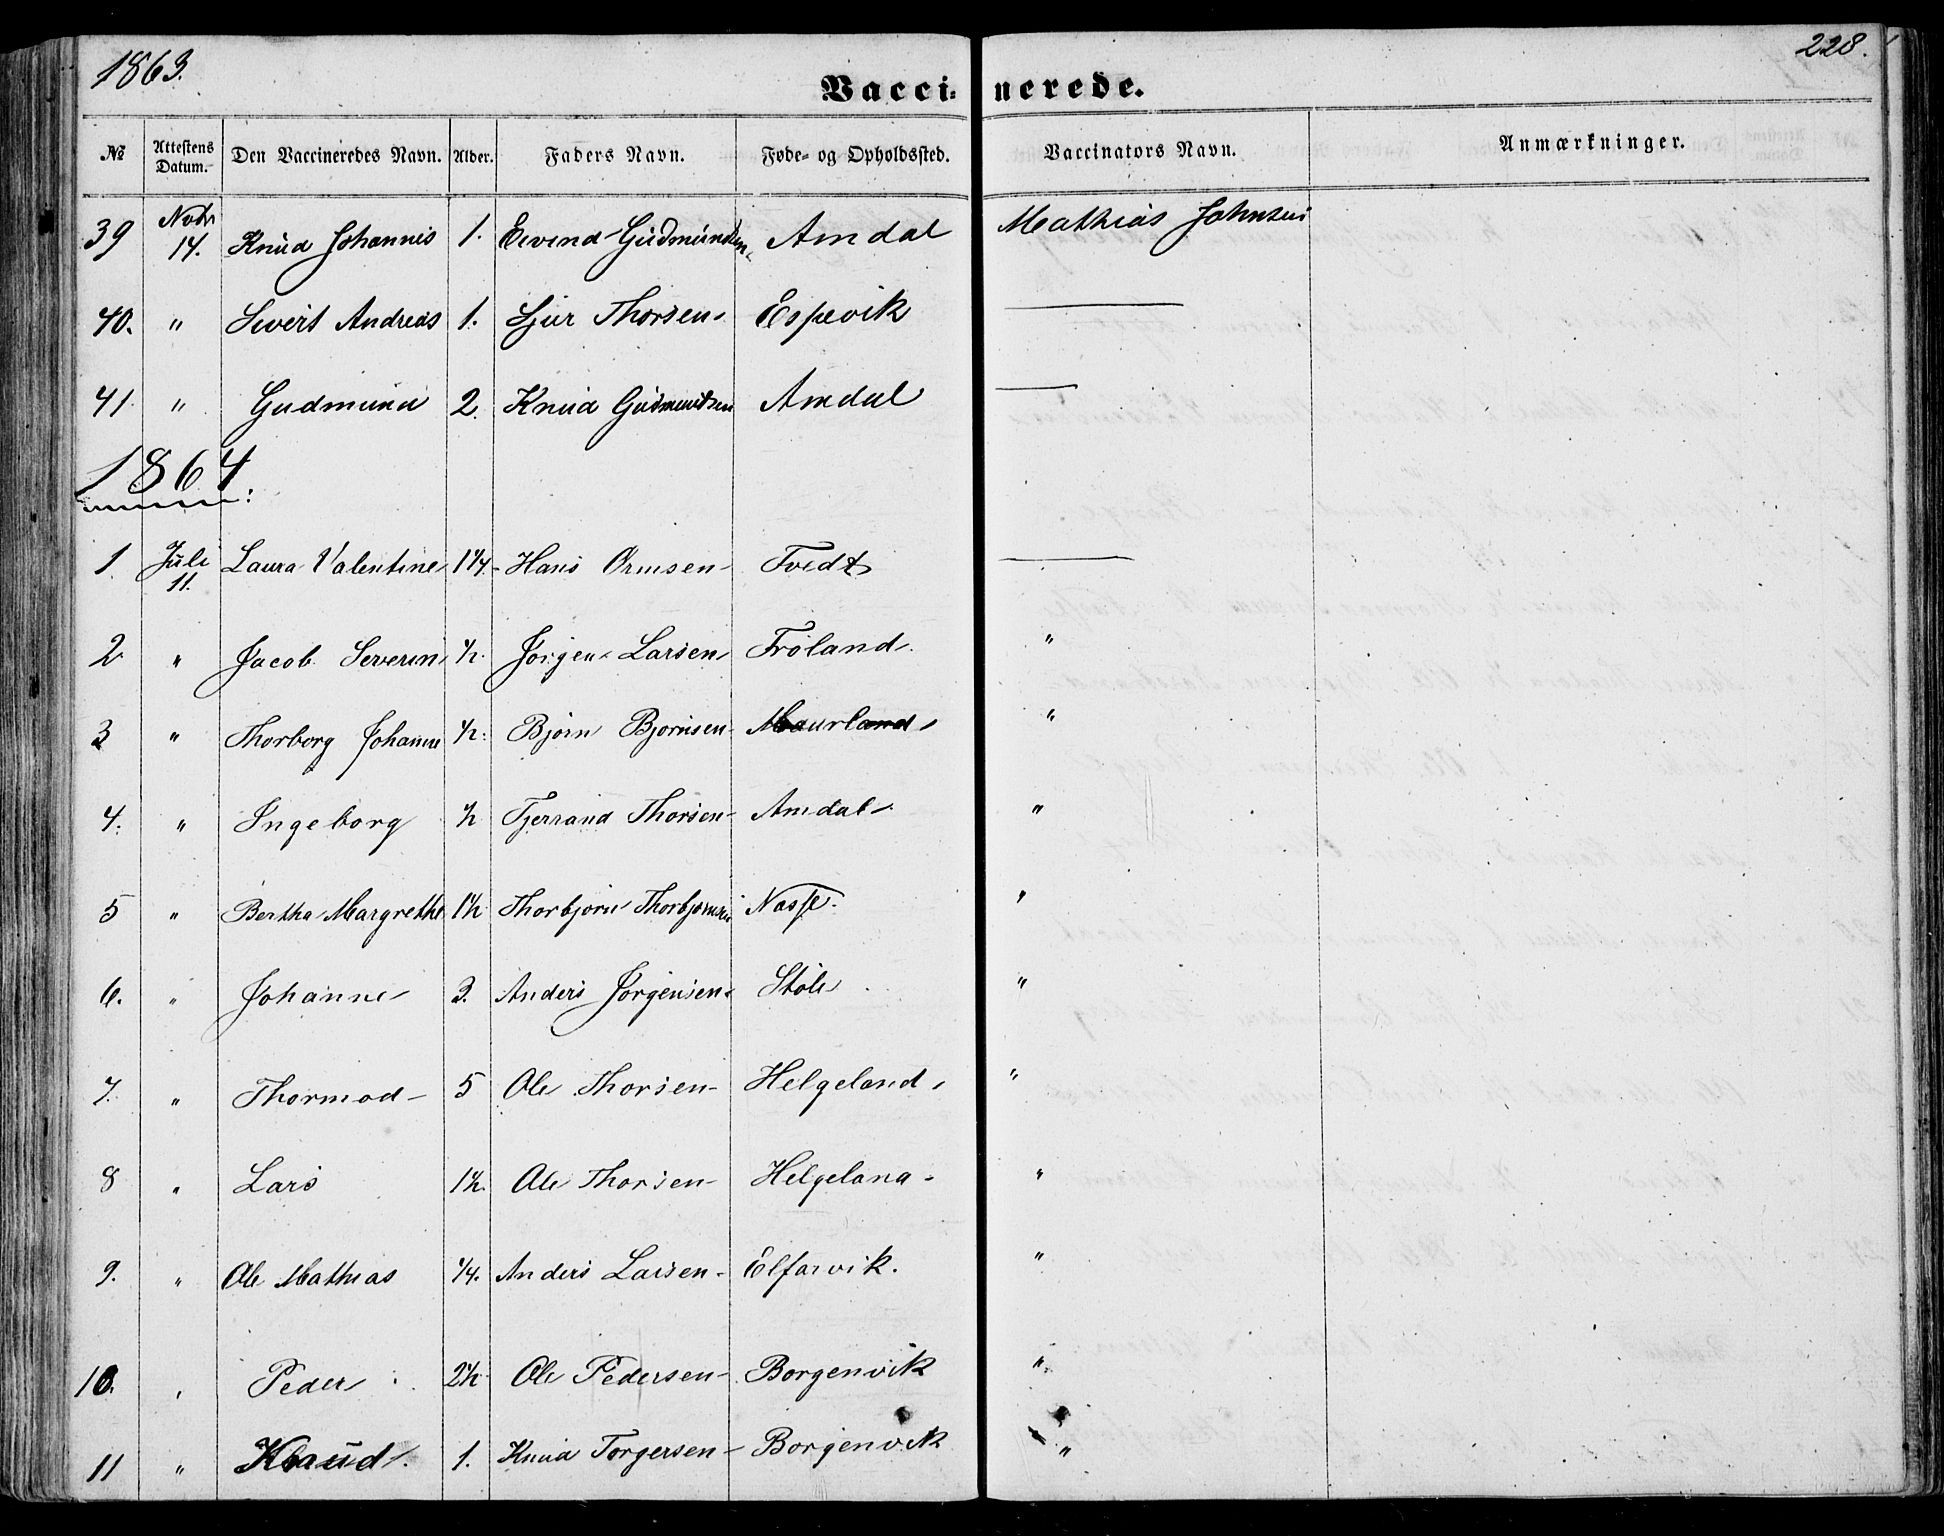 1863.
228.
Vaccinerede.
No Attestens Datum. Den Vaccineredes Navn. Alder. Faders Navn. Føde- og Opholdssted. Vaccinators Navn. Anmærkninger.
39 Novbr 14. Knud Johannes 1. Eivind Gudmundsen Amdal Mathias Johnsen
40. " Sivert Andreas 1. Sjur Thorsen Espevik —
41. " Gudmund 2. Knud Gudmundsen Amdal —
1864:
1. Juli 11. Laura Valentine 1 1/4. Hans Ormsen Tvedt —
2 " Jacob Severin 1/2. Jørgen Larsen Frøland. "
3 " Thorborg Johanne 1/2. Bjørn Bjørnsen Maurland "
4. " Ingeborg 1/2 Tjerrand Thorsen Amdal "
5 " Bertha Margrethe 1 1/2 Thorbjørn Thorbjørnsen "
6. " Johanne 3. Anders Jørgensen Støle "
7. " Thormod 5 Ole Thorsen Helgeland "
8 " Lars 1 1/2. Ole Thorsen Helgeland "
9. " Ole Mathias 1/4. Anders Larsen Elfarvik. "
10. " Peder 2 1/2 Ole Pedersen Borgenvik "
11 " Knud 1. Knud Torgersen Borgenvik "